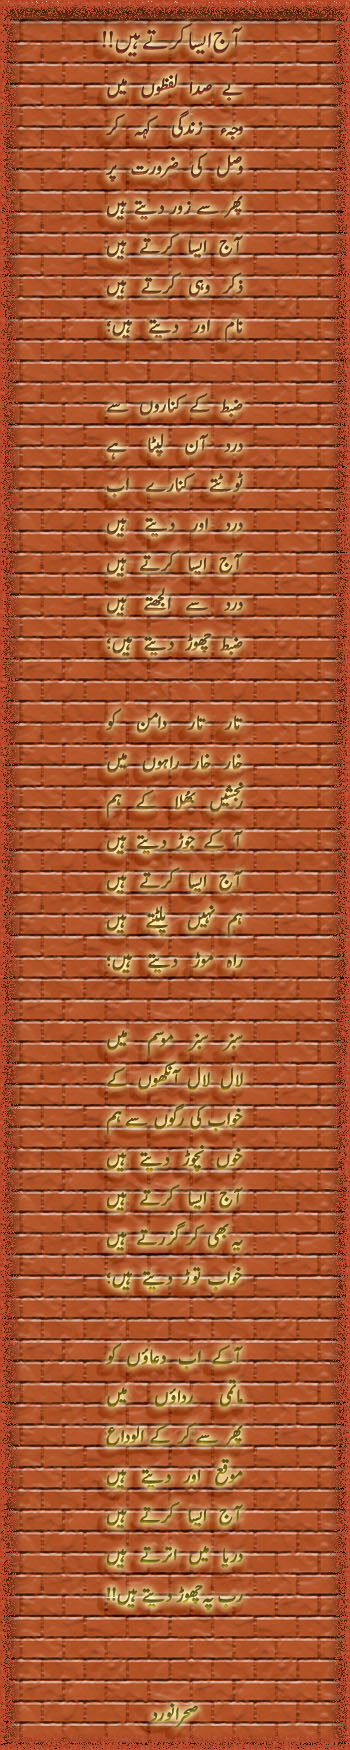 آج ایسا کرتے ہیں!!
بے صدا لفظوں میں
وجہء زندگی کہہ کر
وصل کی ضرورت پر
پھر سے زور دیتے ہیں
آج ایسا کرتے ہیں
ذکر وہی کرتے ہیں
نام اور دیتے ہیں؛
ضبط کے کناروں سے
درد آن لپٹا ہے
ٹوٹتے کنارے اب
درد اور دیتے ہیں
آج ایسا کرتے ہیں
درد سے الجھتے ہیں
ضبط چھوڑ دیتے ہیں؛
تار تار دامن کو
خار خار راہوں میں
رنجشیں بھُلا کے ہم
آ کے جوڑ دیتے ہیں
آج ایسا کرتے ہیں
ہم نہیں پلٹتے ہیں
راہ موڑ دیتے ہیں؛
سبز سبز موسم میں
لال لال آنکھوں کے
خواب کی رگوں سے ہم
خوں نچوڑ دیتے ہیں
آج ایسا کرتے ہیں
یہ بھی کر گزرتے ہیں
خواب توڑ دیتے ہیں؛
آکے اب دعاؤں کو
ماتمی رداؤں میں
پھر سے کر کے الوداع
موقع اور دیتے ہیں
آج ایسا کرتے ہیں
دریا میں اترتے ہیں
رب پہ چھوڑ دیتے ہیں!!
صحرانورد